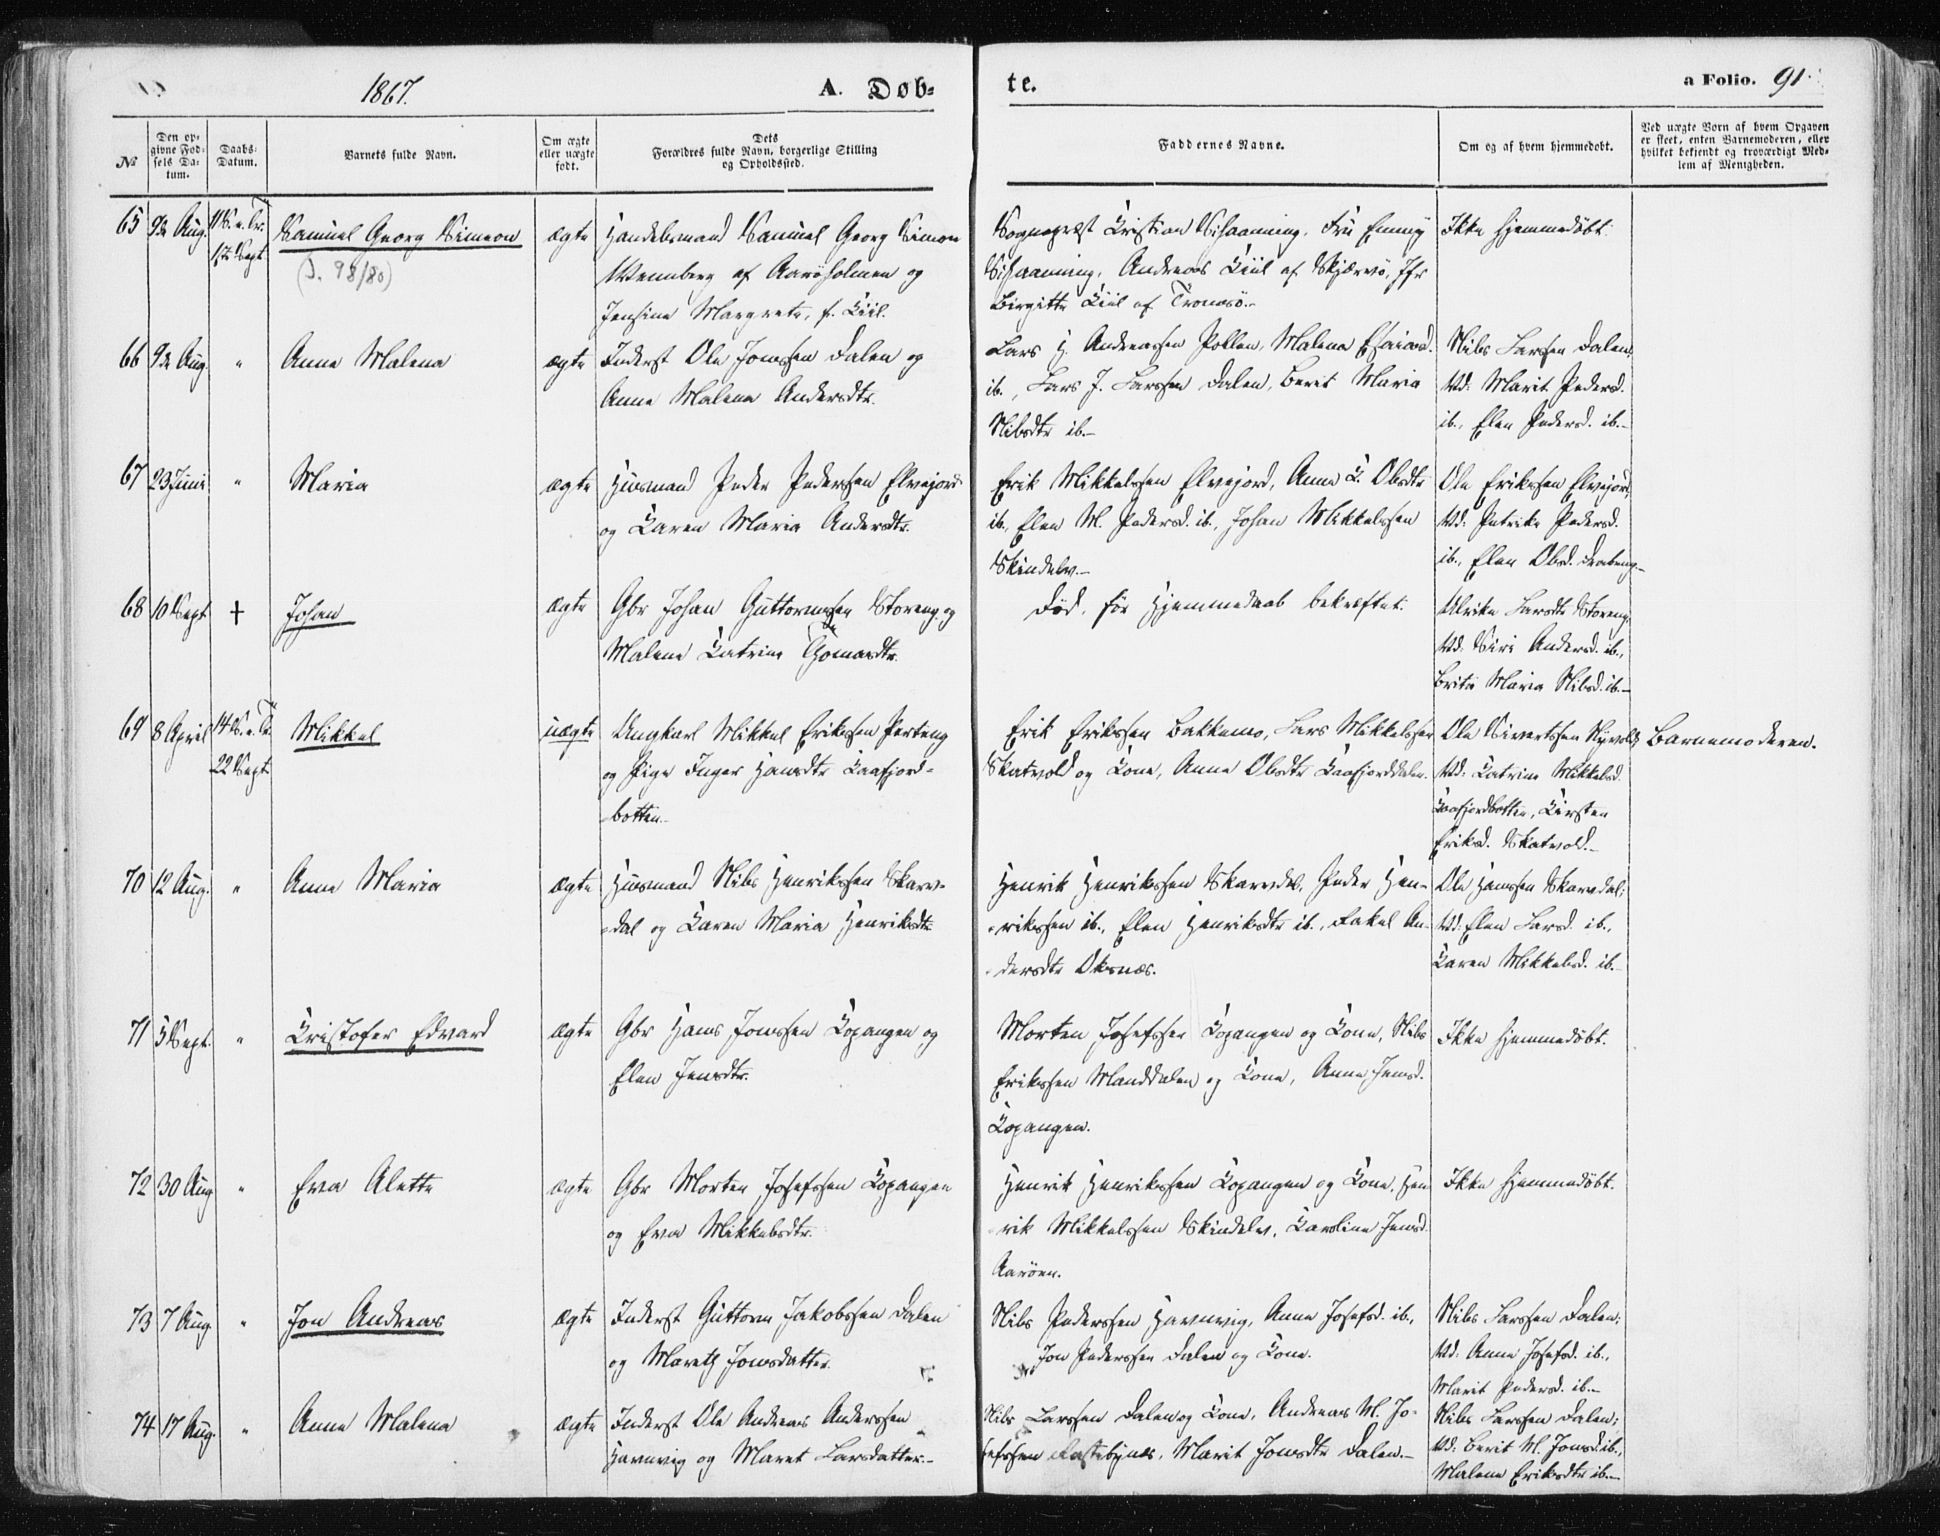 1867.
A. Døb-
te.
a Folio. 91.
No
Den op-
givne Fød-
sels Da-
tum.
Daabs-
Datum.
Barnets fulde Navn.
Om ægte
eller uægte
født.
Dets
Forældres fulde Navn, borgerlige Stilling
og Opholdssted.
Faddernes Navne.
Om og af hvem hjemmedøbt.
Ved uægte Børn af hvem Opgaven
er skeet, enten Barnemoderen, eller
hvilket bekjendt og troværdigt Med-
lem af Menigheden.
65 9de Aug. Samuel Georg Simeon ægte Handelsmand Samuel Georg Simon
Wennberg af Aarøholmen og
Jensine Margrete, f. Kiil.
Sognepræst Kristian Schaanning, Fru Emmy
Schaanning, Andreas Kiil af Skjærvø, Jfr
Birgitte Kiil af Tromsø.-
Ikke hjemmedøbt.
66 9de Aug. " Anne Malena ægte Inderst Ole Jonssen Dalen og
Anne Malena Andersdtr.
Lars H. Andreassen Pollen, Malena Esaiasd.
ib., Lars J. Larssen Dalen, Berit Maria
Nilsdtr ib.-
Nils Larssen Dalen;
Vd: Marit Pedersd.
ib., Elen Pedersd. ib.-
67 23 Juni " Maria ægte Husmand Peder Pedersen Elvejord
og Karen Maria Andersdtr.
Erik Mikkelssen Elvejord, Anne K. Olsdtr
ib., Elen M. Pedersd. ib., Johan Mikkelssen
Skindelv.-
Ole Erikssen Elvejord;
Vd: Petrike Pedersd.
ib., Elen Olsd.
68 10 Sept † Johan ægte Gbr Johan Guttormssen Storeng og
Malene Katrine Thomasdtr.
Død, før Hjemmedaab bekræftet.
Ulrike Larsdtr Storeng;
Vd: Siri Andersd. ib.,
Brita Maria Nilsd. ib.-
69 8 April 22 Sept Mikkel uægte Ungkarl Mikkel Erikssen Perteng
og Pige Inger Hansdtr Kaafjord-
botten.-
Erik Erikssen Bakkemo, Lars Mikkelssen
Skatvold og Kone, Anne Olsdtr Kaafjorddalen.
Ole Sivertsen Nyvold;
Vd: Katrine Mikkelsd.
Kaafjordbotten, Kirsten
Eriksd. Skatvold.-
Barnemoderen.
70 12 Aug. " Anne Maria ægte Husmand Nils Henrikssen Skarv-
dal og Karen Maria Henriksdtr.
Henrik Henrikssen Skarvdal, Peder Hen-
rikssen ib., Elen Henriksdtr ib., Rakel An-
dersdtr Oksnæs.
Ole Hanssen Skarvdal;
Vd: Elen Larsd. ib.,
Karen Mikkelsd. ib.-
71 5 Sept. " Kristofer Edvard ægte Gbr Hans Jonssen Kopangen og
Elen Jensdtr.
Morten Josefssen Kopangen og Kone, Nils
Erikssen Manddalen og Kone, Anne Jensd.
Kopangen.
Ikke hjemmedøbt.
72 30 Aug " Eva Alette ægte Gbr Morten Josefssen Kopangen
og Eva Mikkelsdtr.
Henrik Henrikssen Kopangen og Kone, Hen
rik Mikkelssen Skindelv, Karoline Jensd.
Aarøen.
Ikke hjemmedøbt.
73 7 Aug " Jon Andreas ægte Inderst Guttorm Jakobssen Dalen
og Mareth Jonsdatter.
Nils Pederssen Havnvig, Anne Josefsd. ib.,
Jon Pederssen Dalen og Kone.
Nils Larssen Dalen;
Vd: Anne Josefsd. ib.,
Marit Pedersd. ib.-
74 17 Aug. " Anne Malena ægte Inderst Ole Andreas Anderssen
Havnvig og Maret Larsdatter.-
Nils Larssen Dalen og Kone, Andreas M. Jo-
sefssen Rastebynes, Marit Jonsdtr Dalen.-
Nils Larssen Dalen;
Vd: Berit M. Jonsd. ib.,
Malene Eriksdtr ib.-